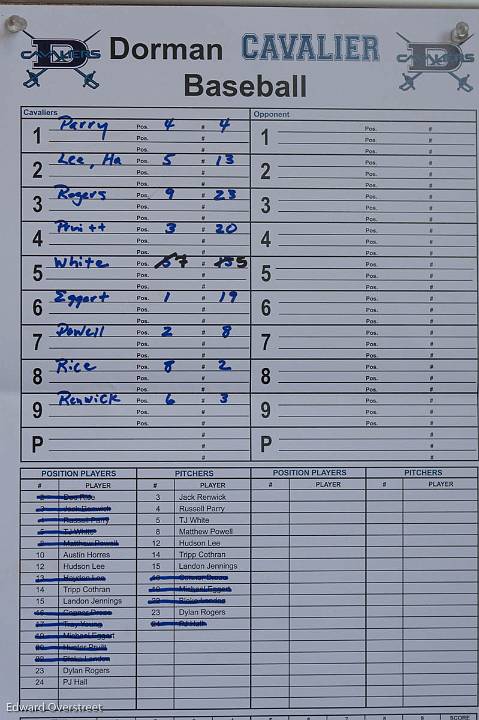 Dorman CAVALIER
Baseball
CAVALIERS D CAVALIERS D
Cavaliers Opponent
1 Parry Pos. 4 # 4
Pos. #
Pos. #
2 Lee, Ha Pos. 5 # 13
Pos. #
Pos. #
3 Rogers Pos. 9 # 23
Pos. #
Pos. #
4 Pruitt Pos. 3 # 20
Pos. #
Pos. #
5 White Pos. 7 # 5
Pos. #
Pos. #
6 Eggert Pos. 1 # 19
Pos. #
Pos. #
7 Powell Pos. 2 # 8
Pos. #
Pos. #
8 Rice Pos. 8 # 2
Pos. #
Pos. #
9 Renwick Pos. 6 # 3
Pos. #
Pos. #
P #
#
#
1 Pos. #
Pos. #
Pos. #
2 Pos. #
Pos. #
Pos. #
3 Pos. #
Pos. #
Pos. #
4 Pos. #
Pos. #
Pos. #
5 Pos. #
Pos. #
Pos. #
6 Pos. #
Pos. #
Pos. #
7 Pos. #
Pos. #
Pos. #
8 Pos. #
Pos. #
Pos. #
9 Pos. #
Pos. #
Pos. #
P #
#
#
POSITION PLAYERS PITCHERS POSITION PLAYERS PITCHERS
# PLAYER # PLAYER # PLAYER # PLAYER
Rice
3 Jack Renwick
Russell Parry
TJ White
Matthew Powell
10 Austin Horres
12 Hudson Lee
13 Hayden Lee
14 Tripp Cothran
15 Landon Jennings
Conner Dross
17 Trey Young
19 Michael Eggert
20 Hunter Pruitt
22 Blake Landon
23 Dylan Rogers
24 PJ Hall
3 Jack Renwick
4 Russell Parry
5 TJ White
8 Matthew Powell
12 Hudson Lee
14 Tripp Cothran
15 Landon Jennings
Conner Dross
19 Michael Eggert
22 Blake Landon
23 Dylan Rogers
24 PJ Hall
SCORE
Edward Overstreet